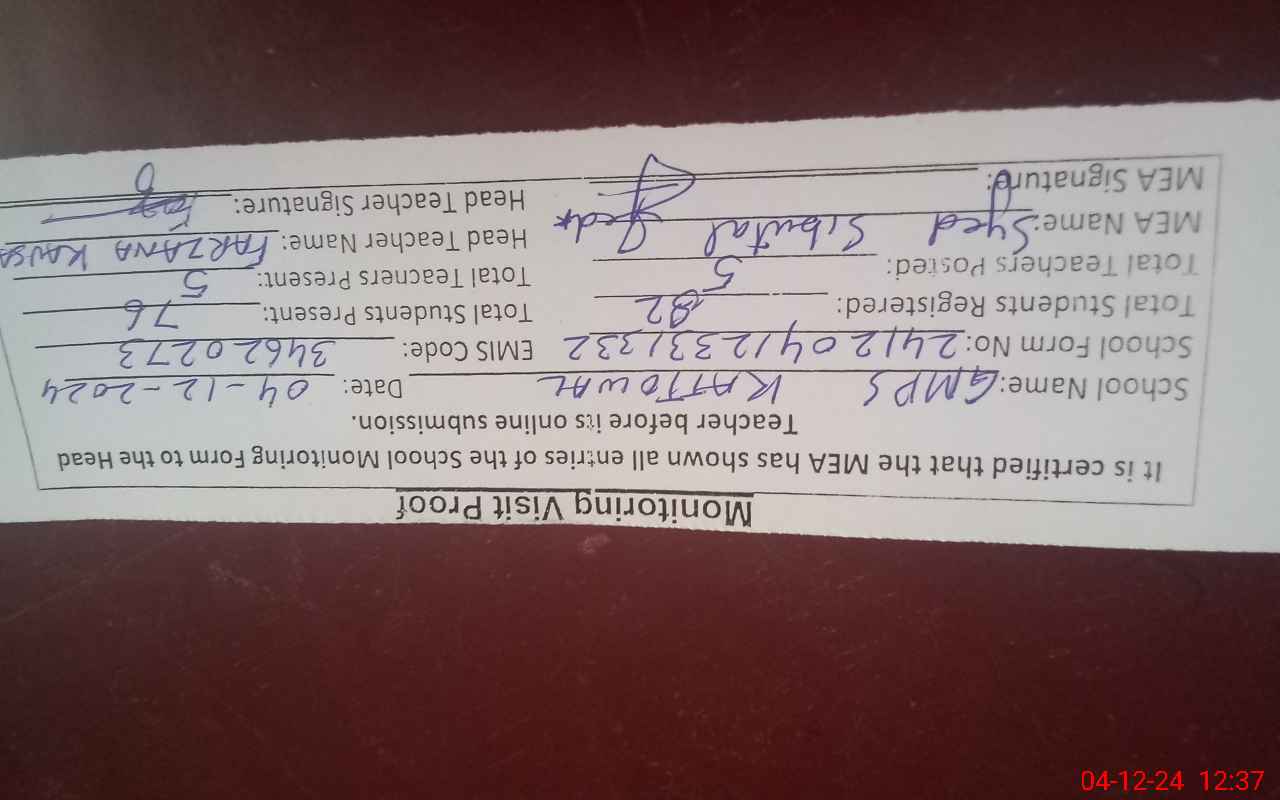 Monitoring Visit Proof
It is certified that the MEA has shown all entries of the School Monitoring Form to the Head
Teacher before its online submission.
School Name: GMPS KATTOWAL Date: 04-12-2024
School Form No: 24120412331332 EMIS Code: 34620273
Total Students Registered: 82 Total Students Present: 76
Total Teachers Posted: 5 Total Teachers Present: 5
MEA Name: Syed Head Teacher Name: FARZANA KAUSA
MEA Signature: Head Teacher Signature:
04-12-24 12:37